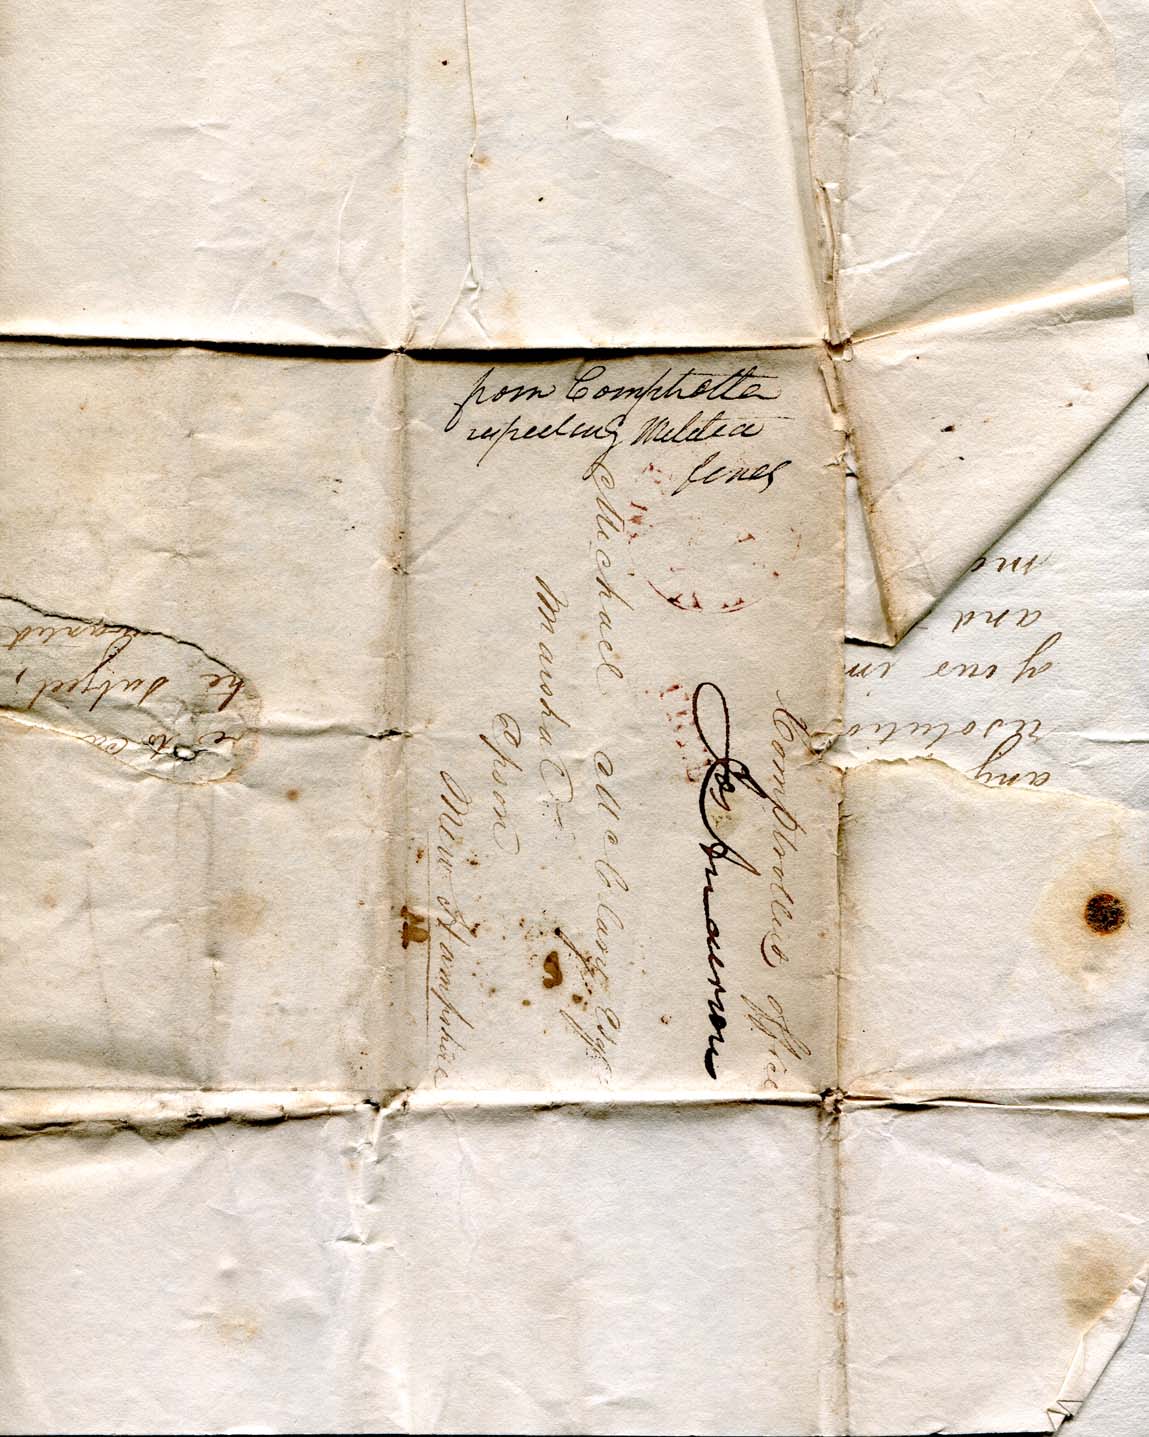 from Comptroller
respecting Militia
fines
Comptrollers Office
Jos. Anderson
Michael McClary Esqr.
Marshal
Epsom
New Hampshire
any
resolutio
of ous im
and
mo
re to
he subject,